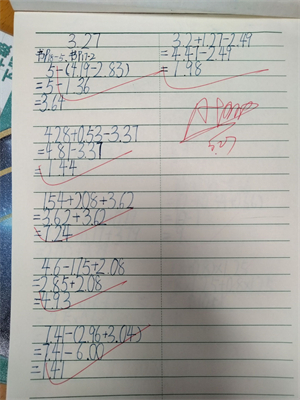 3.27
书P18-5、书P17-2
5-(4.19-2.83)
=5-1.36
=3.64
4.28+0.53-3.37
=4.81-3.37
=1.44
1.54+2.08+3.62
=3.62+3.62
=7.24
4.6-1.75+2.08
=2.85+2.08
=4.93
7.41-(2.96+3.04)
=7.41-6.00
=1.41
3.2+1.27-2.49
=4.47-2.49
=1.98